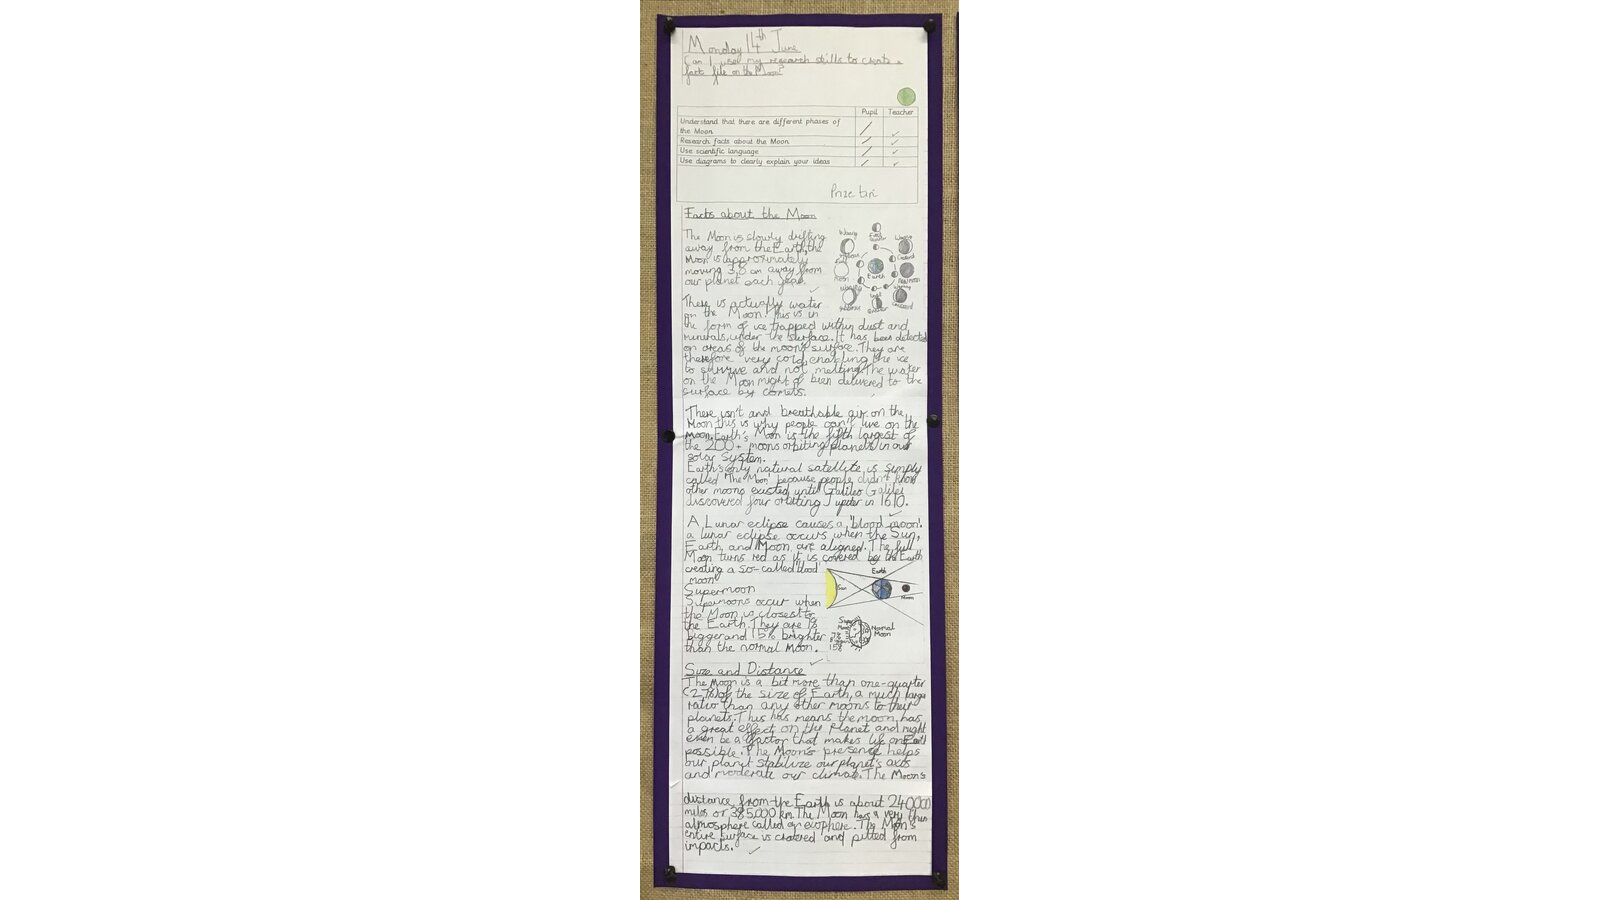 Monday 14th June
Can I use my research skills to create a
fact file on the Moon?
Pupil Teacher
Understand that there are different phases of
the Moon
Research facts about the Moon
Use scientific language
Use diagrams to clearly explain your ideas
Facts about the Moon
The Moon is slowly drifting
away from the Earth, the
Moon is approximately
moving 3,8 cm away from
our planet each year.
There is actually water
on the Moon! This is in
the form of ice trapped within dust and
minerals, under the surface. It has been detected
on areas of the moon's surface. They are
therefore very cold, enabling the ice
to survive and not melting. The water
on the Moon might of been delivered to the
surface by comets.
There isn't and breathable air on the
Moon this is why people can't live on the
Moon. Earth's Moon is the fifth largest of
the 200+ moons orbiting planets in our
solar system.
Earth's only natural satellite is simply
called "The Moon" because people didn't know
other moons existed until Galileo Galilei
discovered four orbiting Jupiter in 1610.
A Lunar eclipse causes a 'blood moon'.
a lunar eclipse occurs when the Sun,
Earth, and Moon are aligned. The full
Moon turns red as it is covered by the Earth
creating a so-called 'blood
moon'
Earth
Sun
Moon
Supermoon
Supermoons occur when
the Moon is closest to
the Earth. They are
bigger and 15% brighter
than the normal Moon.
Normal
Moon
15%
Size and Distance
The Moon is a bit more than one-quarter
(27%) of the size of Earth, a much larger
ratio than any other moons to their
planets. This has means the moon has
a great effect on the Planet and might
even be a factor that makes life on Earth
possible. The Moon's presence helps
our planet stabilize our planet's axis
and moderate our climate. The Moon's
distance from the Earth is about 240,000
miles or 385,000 km. The Moon has a very thin
atmosphere called
The Moon's
entire surface is cratered and pitted from
impacts.